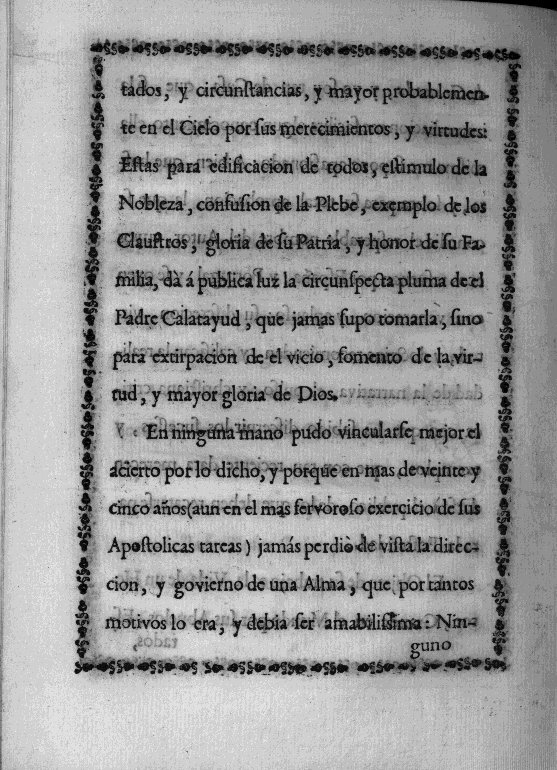 tados, y circunſtancias, y mayor probablemen-
te en el Cielo por ſus merecimientos, y virtudes:
Eſtas para edificacion de todos, eſtimulo de la
Nobleza, confuſion de la Plebe, exemplo de los
Clauſtros, gloria de ſu Patria, y honor de ſu Fa-
milia, dà á publica luz la circunſpecta pluma de el
Padre Calatayud, que jamas ſupo tomarla, ſino
para extirpacion de el vicio, fomento de la vir-
tud, y mayor gloria de Dios.
En ninguna mano pudo vincularſe mejor el
acierto por lo dicho, y porque en mas de veinte y
cinco años (aun en el mas fervoroſo exercicio de ſus
Apoſtolicas tareas) jamás perdiò de viſta la direc-
cion, y govierno de una Alma, que por tantos
motivos lo era, y debia ſer amabiliſſima: Nin-
guno